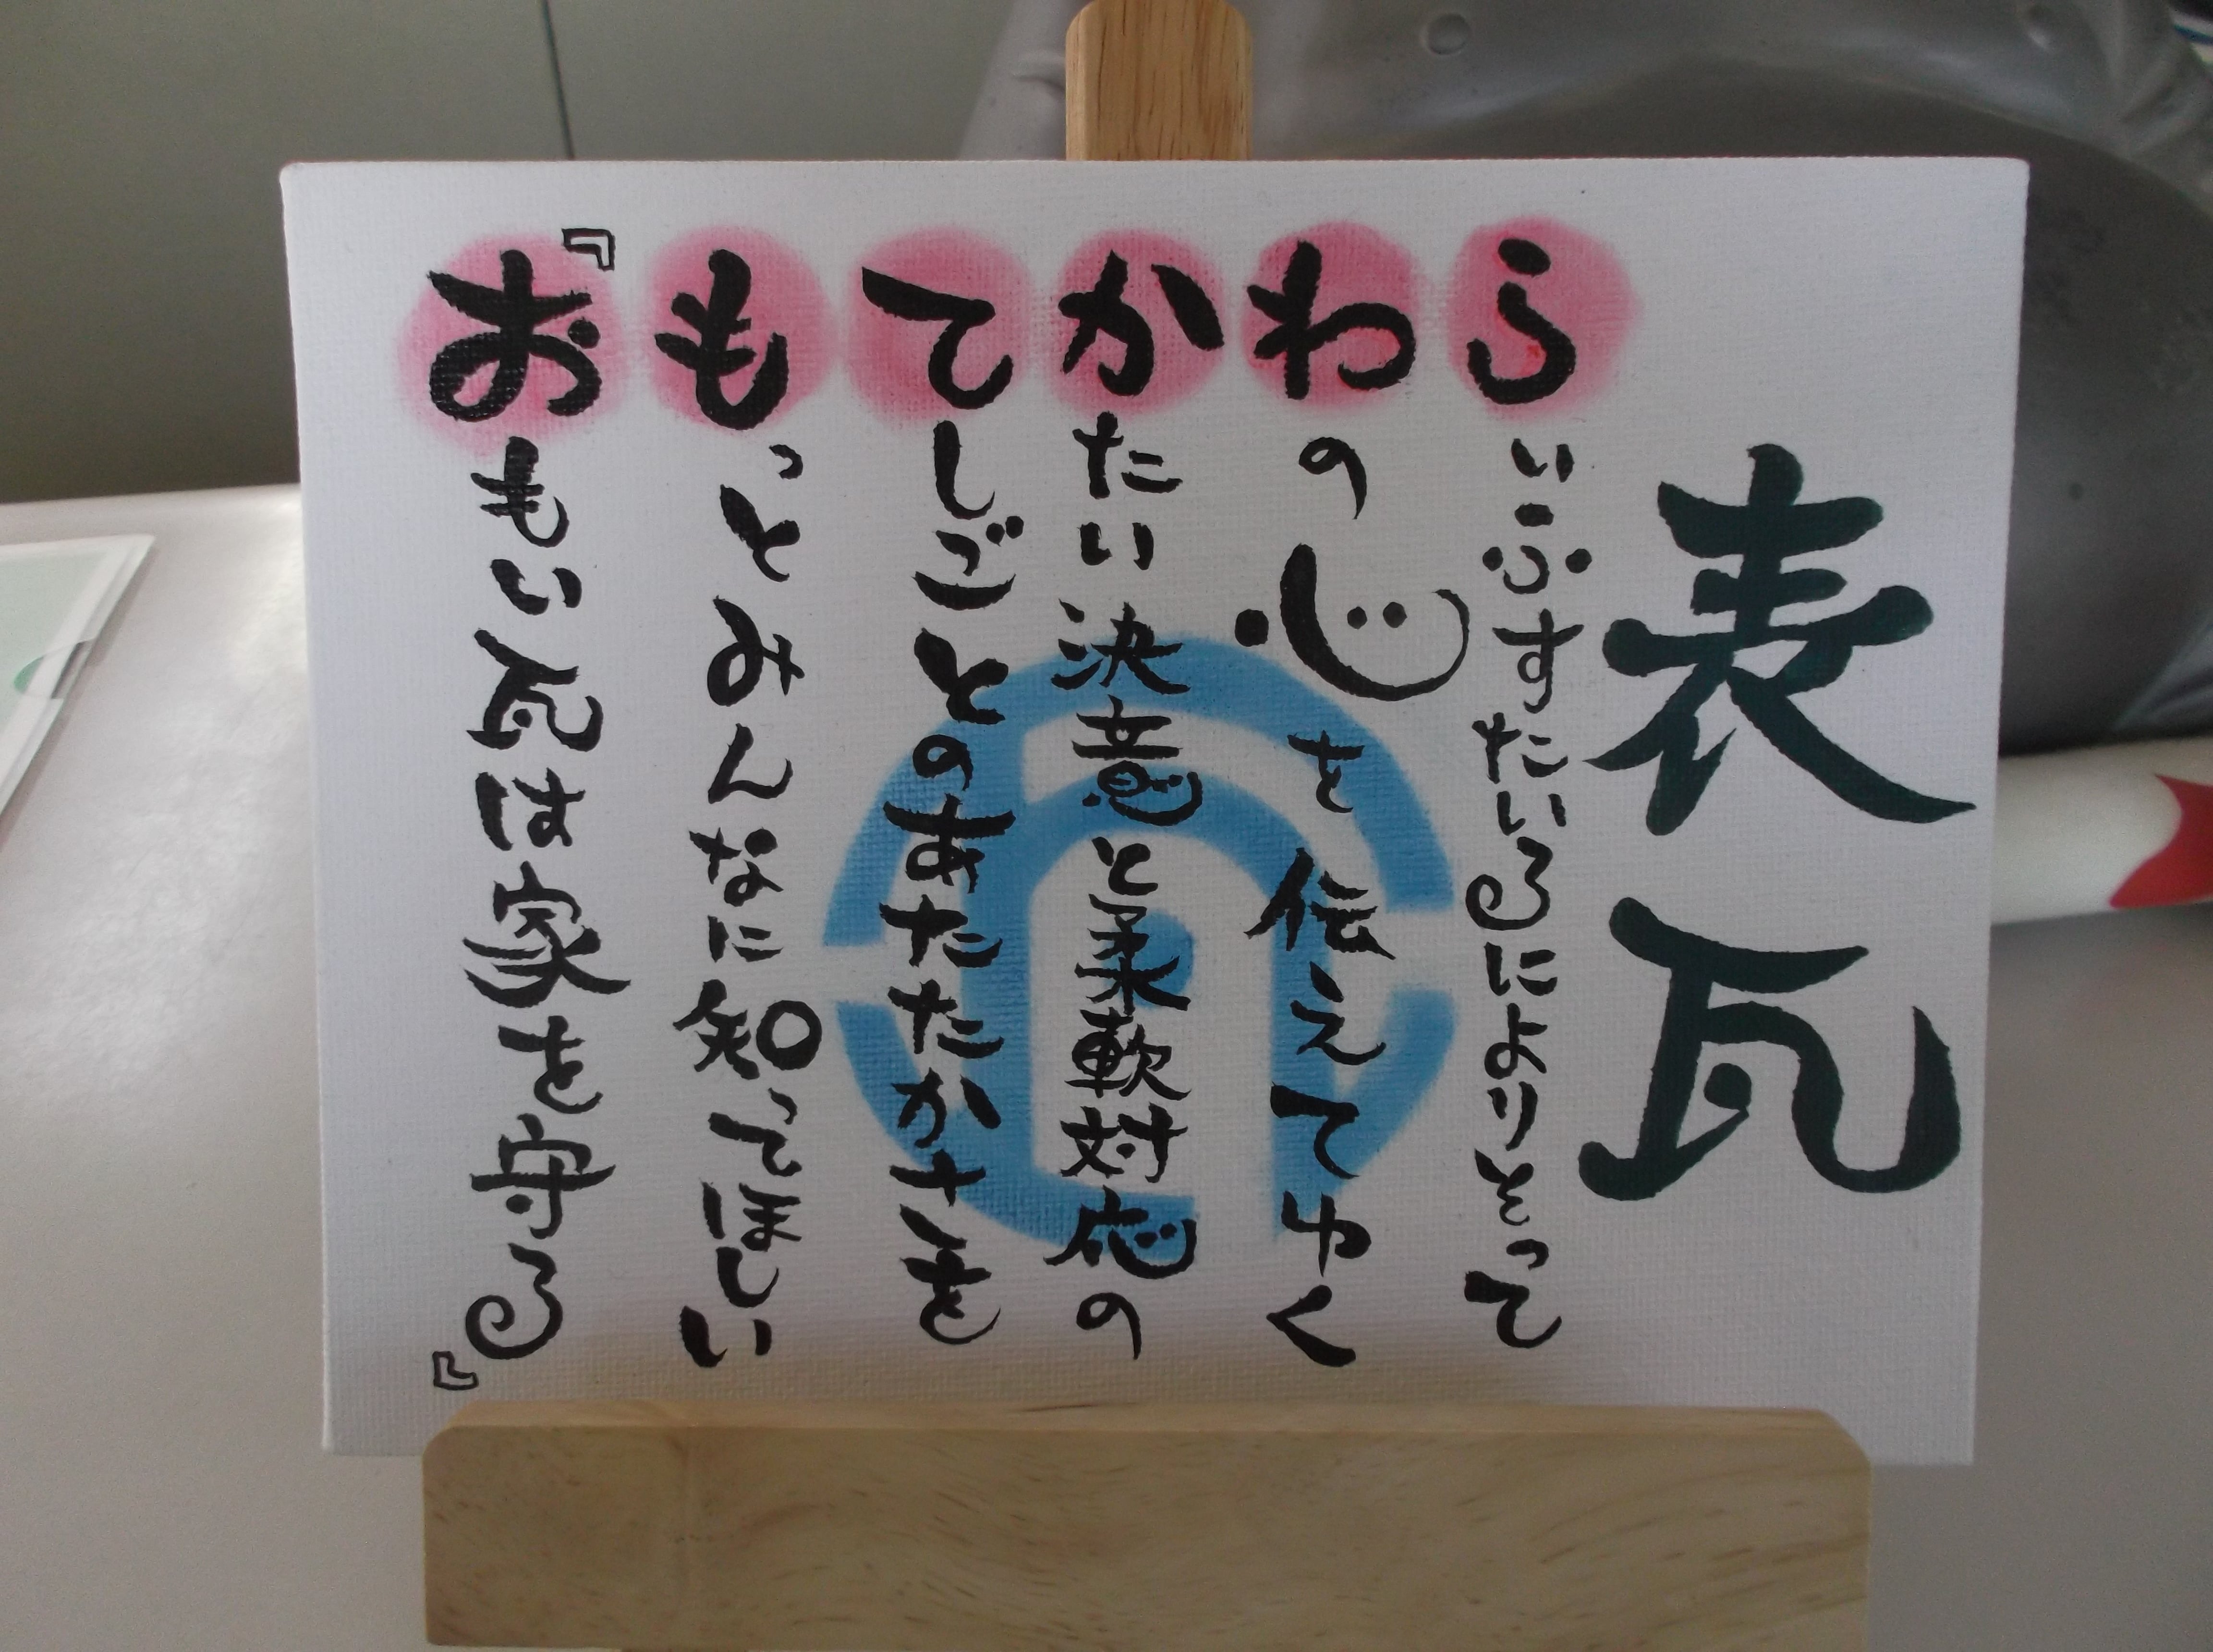 表瓦
『おもい瓦は家を守る』
もっとみんなに知ってほしい
てしごとのあたたかさを
かたい決意と柔軟対応の
わの心を伝えてゆく
らいふすたいるによりそって